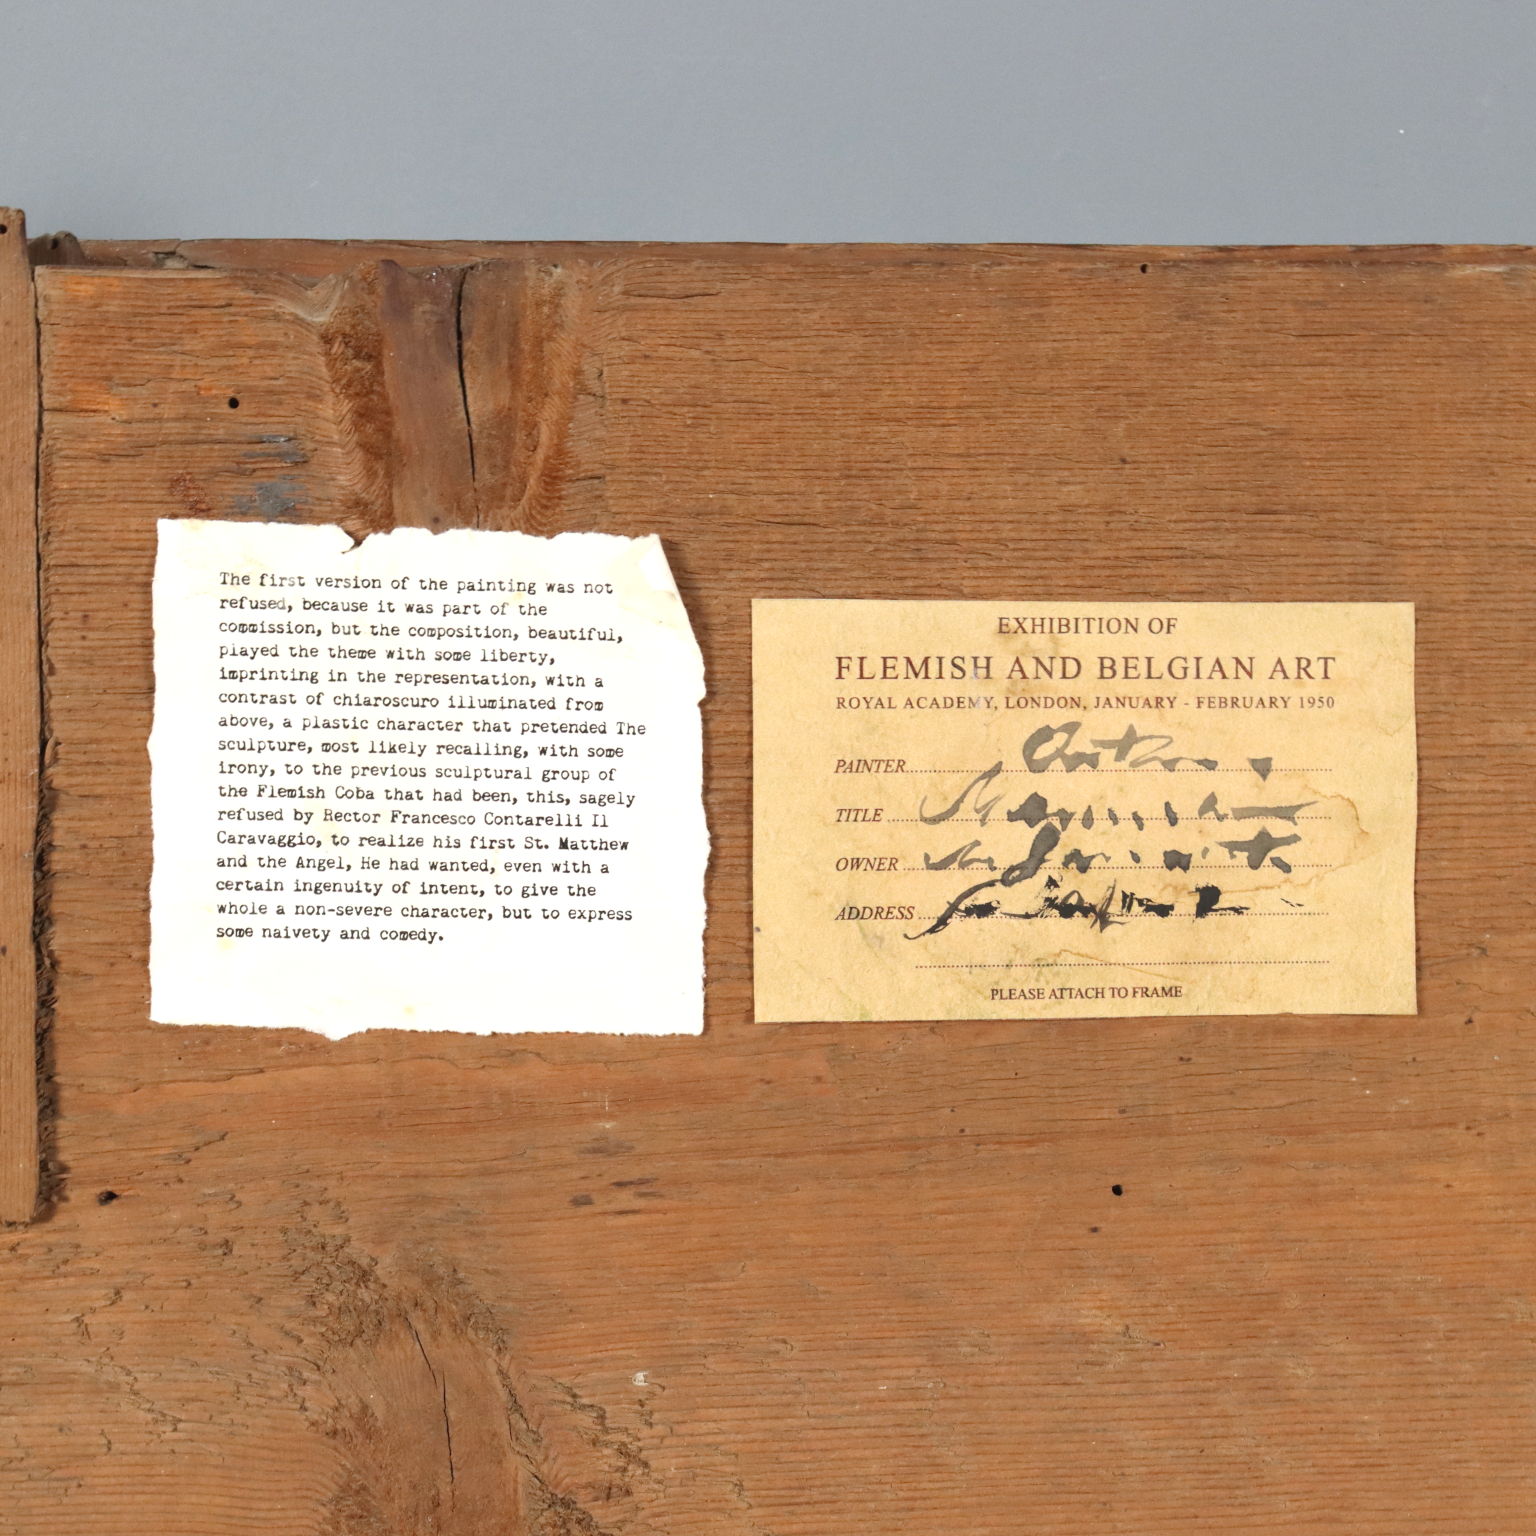 The first version of the painting was not
refused, because it was part of the
commission, but the composition, beautiful,
played the theme with some liberty,
imprinting in the representation, with a
contrast of chiaroscuro illuminated from
above, a plastic character that pretended The
sculpture, most likely recalling, with some
irony, to the previous sculptural group of
the Flemish Coba that had been, this, sagely
refused by Rector Francesco Contarelli Il
Caravaggio, to realize his first St. Matthew
and the Angel, He had wanted, even with a
certain ingenuity of intent, to give the
whole a non-severe character, but to express
some naivety and comedy.
EXHIBITION OF
FLEMISH AND BELGIAN ART
ROYAL ACADEMY, LONDON, JANUARY - FEBRUARY 1950
PAINTER
TITLE
OWNER
ADDRESS
PLEASE ATTACH TO FRAME